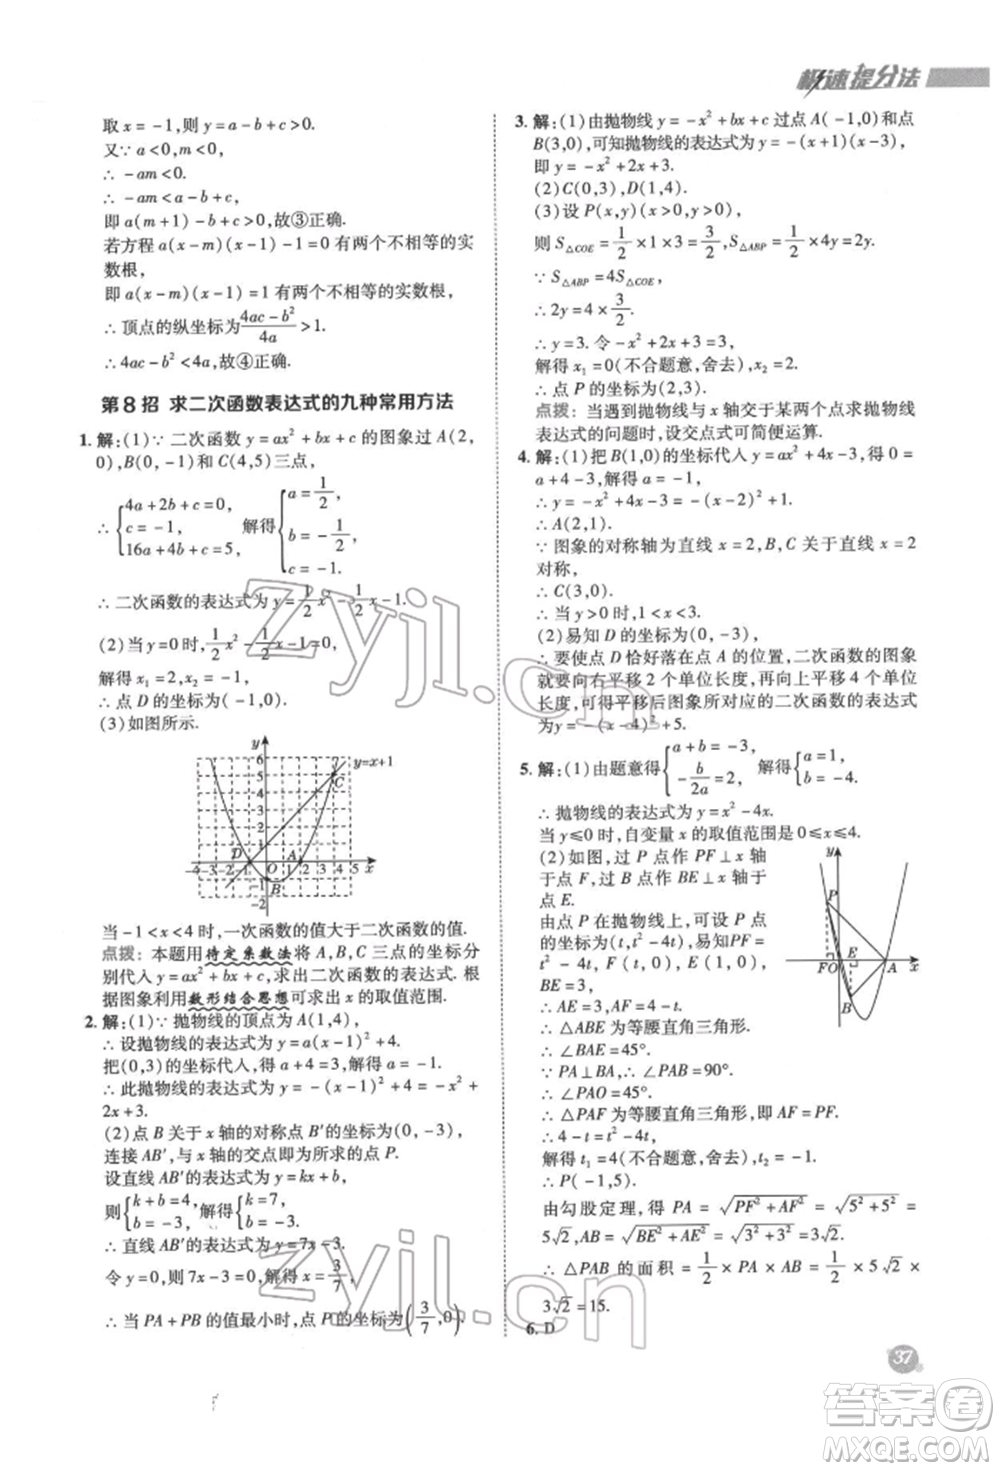 极速提分法
取 x=-1,则 y=a-b+c>0.
又∵ a<0,
∴ -am<0.
∴ -am<a-b+c,
即 a(m+1)-b+c>0,故③正确.
若方程 a(x-m)(x-1)-1=0 有两个不相等的实
数根,
即 a(x-m)(x-1)=1 有两个不相等的实数根,
∴ 顶点的纵坐标为\frac{4ac-b²}{4a}>1.
∴ 4ac-b²<4a,故④正确.
第 8 招 求二次函数表达式的九种常用方法
1. 解:(1)∵ 二次函数 y=ax²+bx+c 的图象过 A(2,
0),B(0,-1)和 C(4,5)三点,
∴ {4a+2b+c=0, c=-1, 16a+4b+c=5, 解得 {a=\frac{1}{2}, b=-\frac{1}{2}, c=-1.
∴ 二次函数的表达式为 y=\frac{1}{2}x²-\frac{1}{2}x-1.
(2)当 y=0 时,\frac{1}{2}x²-\frac{1}{2}x-1=0,
解得 x₁=2,x₂=-1,
∴ 点 D 的坐标为(-1,0).
(3)如图所示.
y
6
5
4
3
2
1
y=x+1
C
D
A
-4-3-2-1
O
1 2 3 4 5
x
B
-2
当 -1<x<4 时,一次函数的值大于二次函数的值.
点拨: 本题用待定系数法将 A,B,C 三点的坐标分
别代入 y=ax²+bx+c,求出二次函数的表达式. 根
据图象利用数形结合思想可求出 x 的取值范围.
2. 解:(1)∵ 抛物线的顶点为 A(1,4),
∴ 设抛物线的表达式为 y=a(x-1)²+4.
把(0,3)的坐标代入,得 a+4=3,解得 a=-1.
∴ 此抛物线的表达式为 y=-(x-1)²+4=-x²+
2x+3.
(2)点 B 关于 x 轴的对称点 B′的坐标为(0,-3),
连接 AB′,与 x 轴的交点即为所求的点 P.
设直线 AB′的表达式为 y=kx+b,
则{k+b=4, b=-3, 解得{k=7, b=-3.
∴ 直线 AB′的表达式为 y=7x-3.
令 y=0,则 7x-3=0,解得 x=\frac{3}{7}.
∴ 当 PA+PB 的值最小时,点 P 的坐标为(\frac{3}{7},0).
3. 解:(1)由抛物线 y=-x²+bx+c 过点 A(-1,0)和点
B(3,0),可知抛物线的表达式为 y=-(x+1)(x-3),
即 y=-x²+2x+3.
(2)C(0,3),D(1,4).
(3)设 P(x,y)(x>0,y>0),
则 S△COE=\frac{1}{2}×1×3=\frac{3}{2},S△ABP=\frac{1}{2}×4y=2y.
∵ S△ABP=4S△COE,
∴ 2y=4×\frac{3}{2}.
∴ y=3. 令 -x²+2x+3=3,
解得 x₁=0(不合题意,舍去),x₂=2.
∴ 点 P 的坐标为(2,3).
点拨: 当遇到抛物线与 x 轴交于某两个点求抛物线
表达式的问题时,设交点式可简便运算.
4. 解:(1)把 B(1,0)的坐标代入 y=ax²+4x-3,得 0=
a+4-3,解得 a=-1.
∴ y=-x²+4x-3=-(x-2)²+1.
∴ A(2,1).
∵ 图象的对称轴为直线 x=2,B,C 关于直线 x=2
对称,
∴ C(3,0).
∴ 当 y>0 时,1<x<3.
(2)易知 D 的坐标为(0,-3),
∴ 要使点 D 恰好落在点 A 的位置,二次函数的图象
就要向右平移 2 个单位长度,再向上平移 4 个单位
长度,可得平移后图象所对应的二次函数的表达
式为 y=-(x-4)²+5.
5. 解:(1)由题意得{a+b=-3, -\frac{b}{2a}=2, 解得{a=1, b=-4.
∴ 抛物线的表达式为 y=x²-4x.
当 y≤0 时,自变量 x 的取值范围是 0≤x≤4.
(2)如图,过 P 点作 PF⊥x 轴
于点 F,过 B 点作 BE⊥x 轴于
点 E.
由点 P 在抛物线上,可设 P 点
的坐标为(t,t²-4t),易知PF=
t²-4t,OA=4,E(1,0),
BE=3,
∴ AE=3,
∴ △ABE 为等腰直角三角形.
∴ ∠BAE=45°.
∵ PA⊥BA,∴ ∠PAB=90°.
∴ ∠PAO=45°.
∴ △PAF 为等腰直角三角形,即 AF=PF.
∴ 4-t=t²-4t,
解得 t₁=4(不合题意,舍去),t₂=-1.
∴ P(-1,5).
由勾股定理,得 PA=\sqrt{PF²+AF²}=\sqrt{5²+5²}=
5√2,AB=\sqrt{BE²+AE²}=\sqrt{3²+3²}=3√2.
∴ △PAB 的面积=\frac{1}{2}×PA×AB=\frac{1}{2}×5√2×
3√2=15.
y
P
E
F O
A
x
B
6. D
37
zyjl.cn
zyjl.cn
答案圈
MXQE.COM